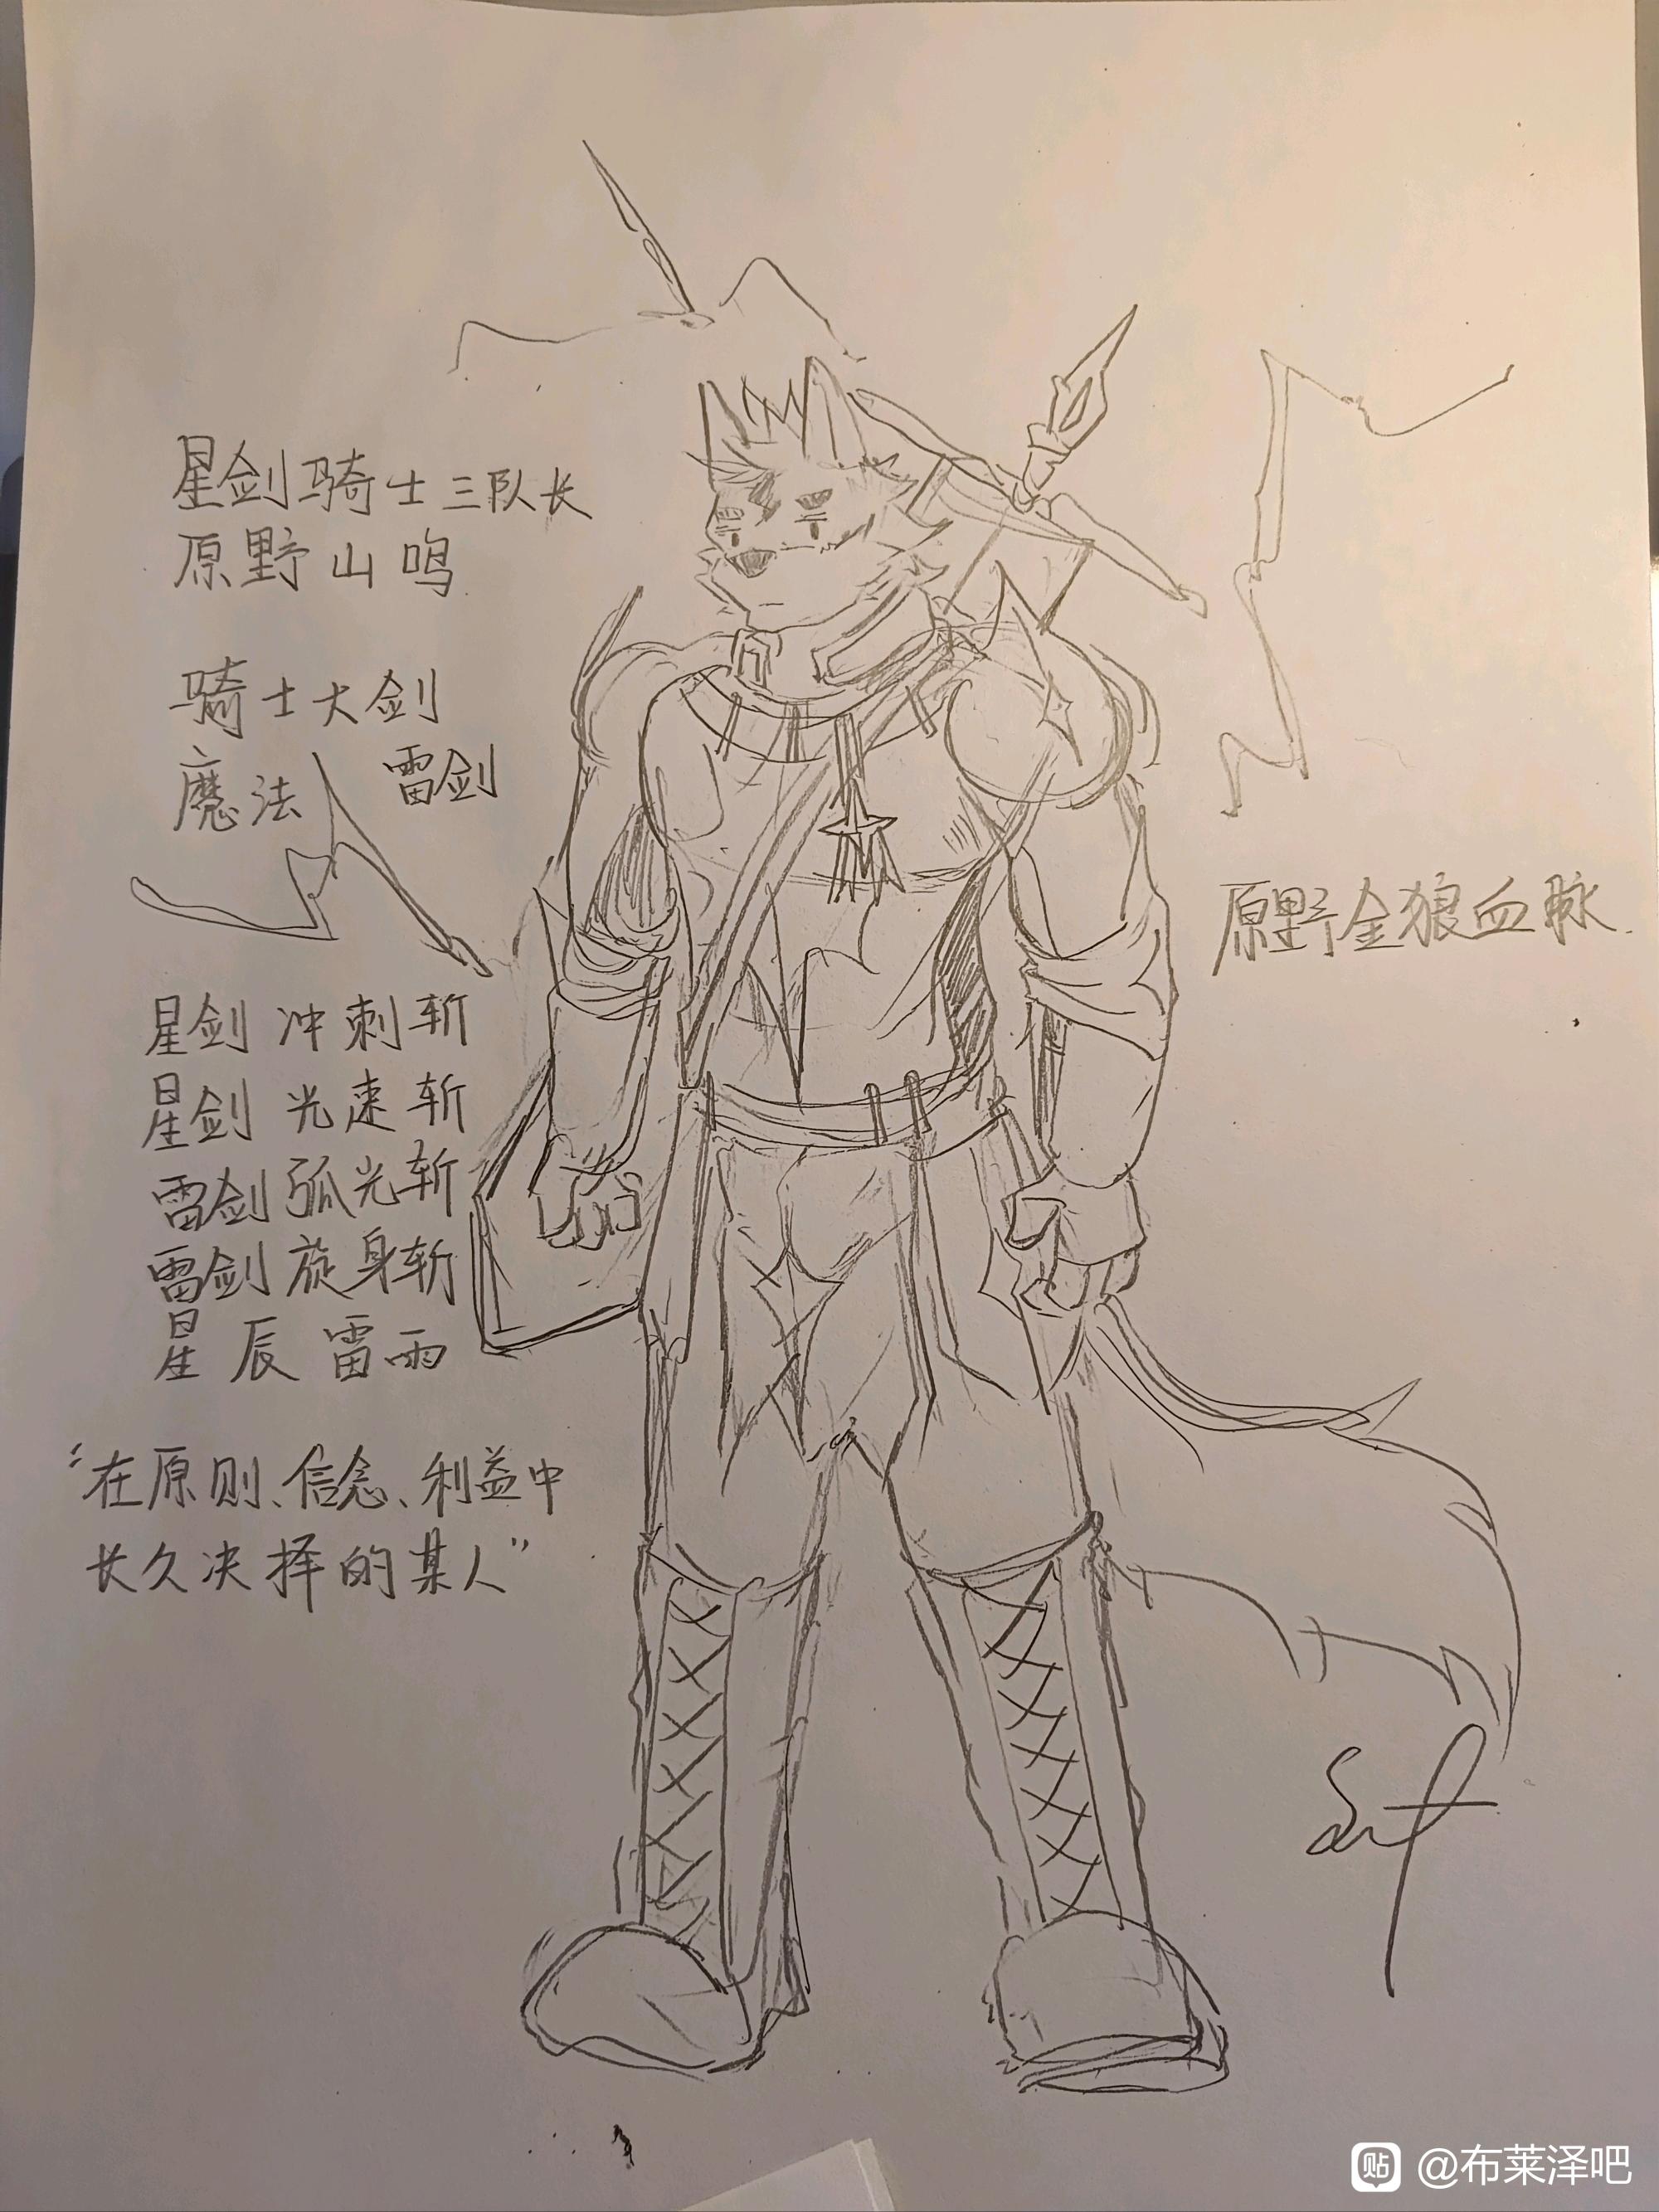 星剑骑士三队长
原野山鸣
骑士大剑
魔法 雷剑
原野金狼血脉
星剑 冲刺斩
星剑 光速斩
雷剑弧光斩
雷剑旋身斩
星辰雷雨
“在原则、信念、利益中
长久决择的某人”
贴 @布莱泽吧